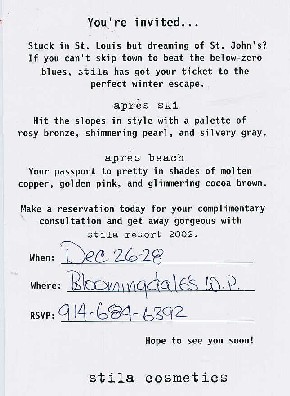 You're invited...
Stuck in St. Louis but dreaming of St. John's?
If you can't skip town to beat the below-zero
blues, stila has got your ticket to the
perfect winter escape.
après ski
Hit the slopes in style with a palette of
rosy bronze, shimmering pearl, and silvery gray.
apres beach
Your passport to pretty in shades of molten
copper, golden pink, and glimmering cocoa brown.
Make a reservation today for your complimentary
consultation and get away gorgeous with
stila resort 2002.
When: Dec 26-28
Where: Bloomingdales W.P.
RSVP: 914-684-6392
Hope to see you soon!
stila cosmetics